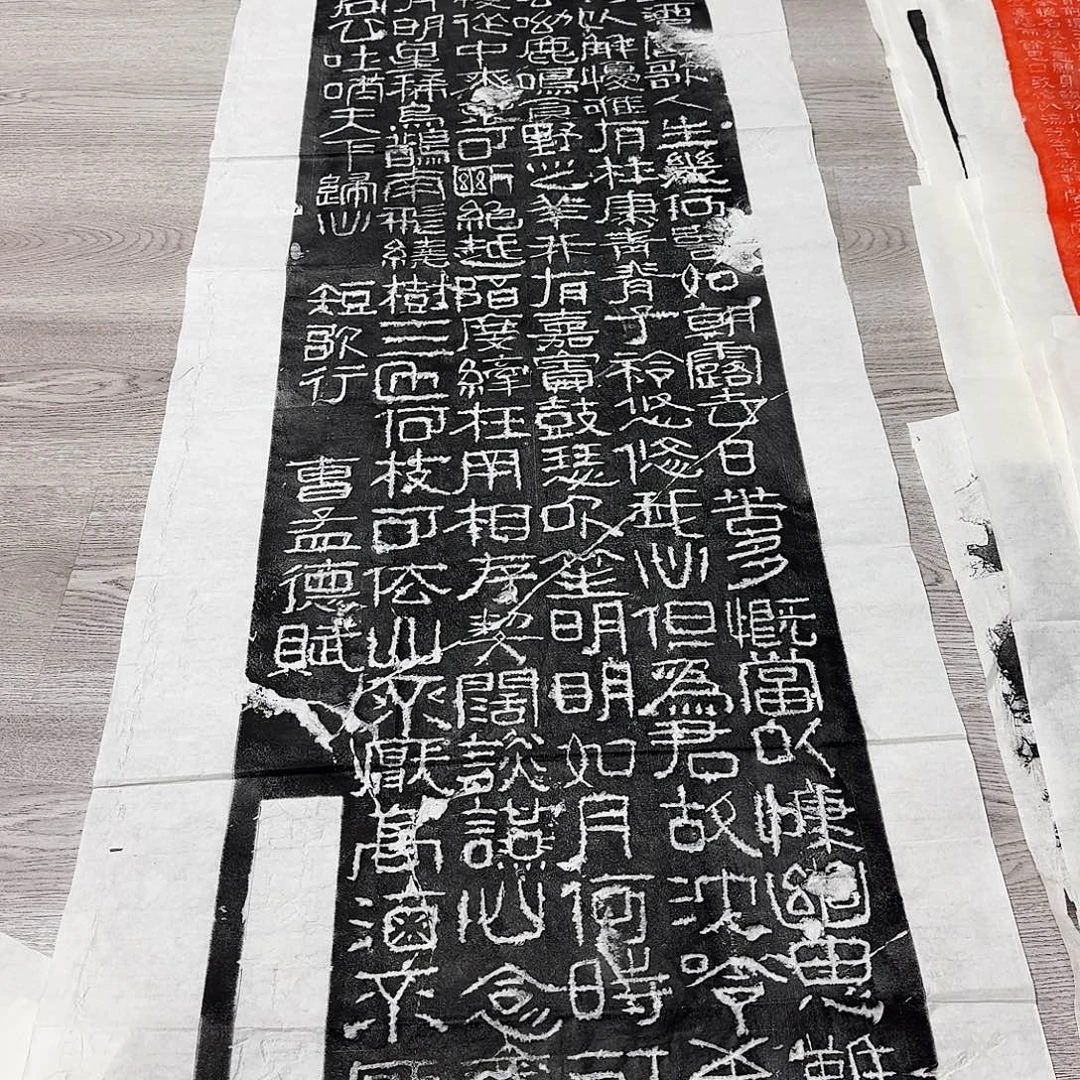 當歌人生幾何譬如朝露去日苦多慨當以慷幽思難
以解憂惟有杜康青青子衿悠悠我心但為君故沈吟
呦鹿鳴食野之苹我有嘉賓鼓瑟吹笙明明如月何時可
從中來不可斷絕越陌度阡枉用相存契闊談讌心念
明星稀烏鵲南飛繞樹三匝何枝可依山不厭高海不
公吐哺天下歸心 短歌行 曹孟德賦